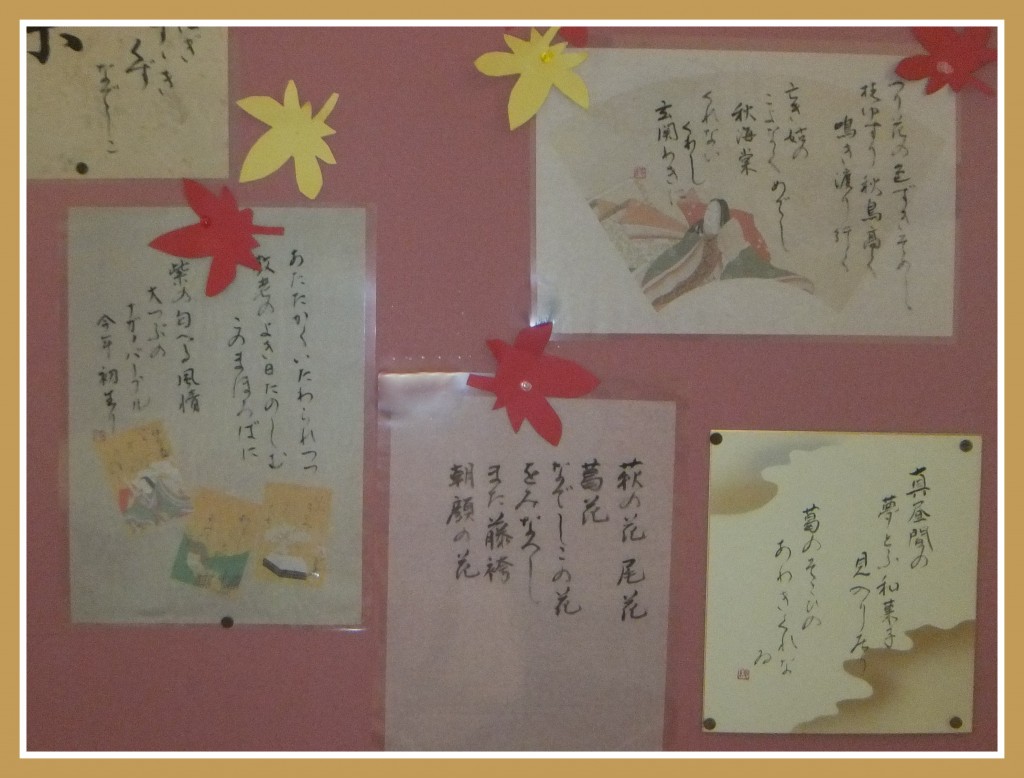 つり花の色づきそめし
枝ゆすり秋鳥高く
鳴き渡り行く
亡き姑の
こよなくめでし
秋海棠
くれない
くわし
玄関わき
くず
なでしこ
あたたかくいたわられつつ
敬老のよき日たのしむ
このまほろばに
紫の匂へる風情
大つぶの
ナガノパープル
今年初生り
萩の花 尾花
葛花
なでしこの花
をみなへし
また藤袴
朝顔の花
真昼間の
夢とふ和菓子
見入りをり
葛のそこひの
あわきくれな
ゐ